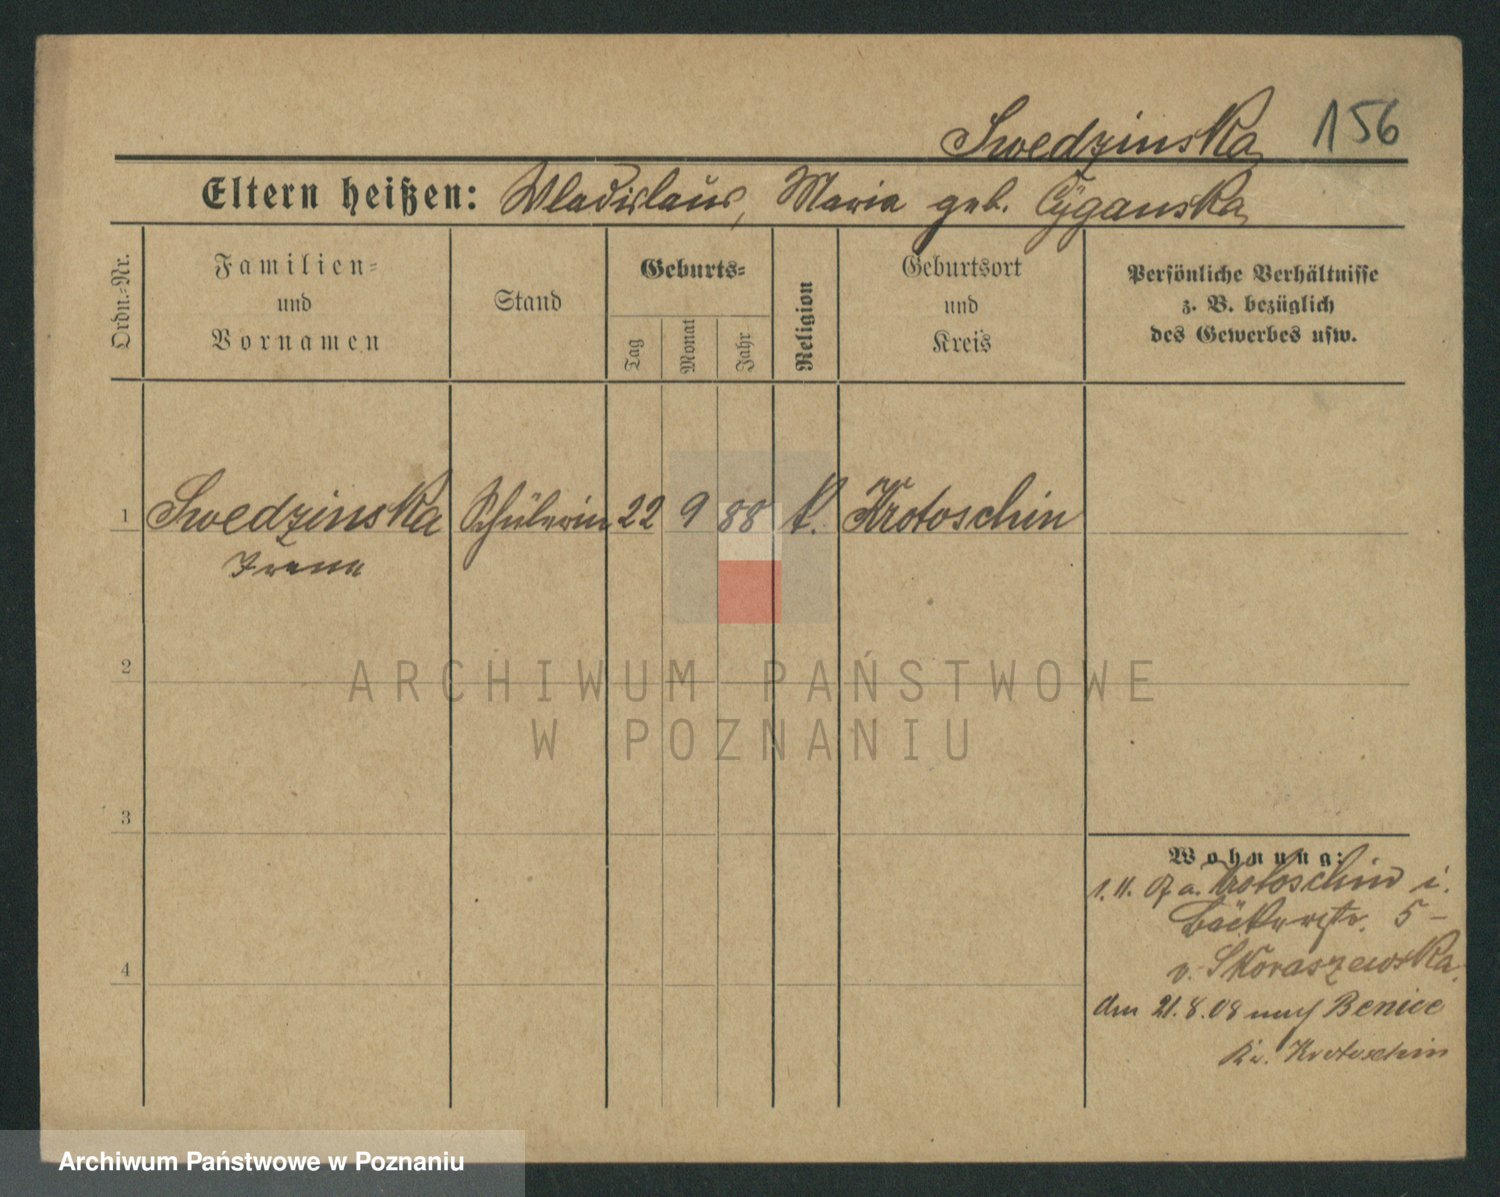 Swedzinska 156
Eltern heißen: Wladislaus, Maria geb. Cyganska
Ordn.-Nr.
Familien-
und
Vornamen
Stand
Geburts-
Tag
Monat
Jahr
Religion
Geburtsort
und
Kreis
Persönliche Verhältnisse
z. B. bezüglich
des Gewerbes usw.
1 Swedzinska Schülerin 22 9 88 k. Krotoschin
Irena
2
3
4
Wohnung:
1. 11. 07 a. Krotoschin i.
Bäckerstr. 5 -
v. Skoraszewska.
den 21.8.08 nach Benice
Kr. Krotoschin
ARCHIWUM PAŃSTWOWE
W POZNANIU
Archiwum Państwowe w Poznaniu